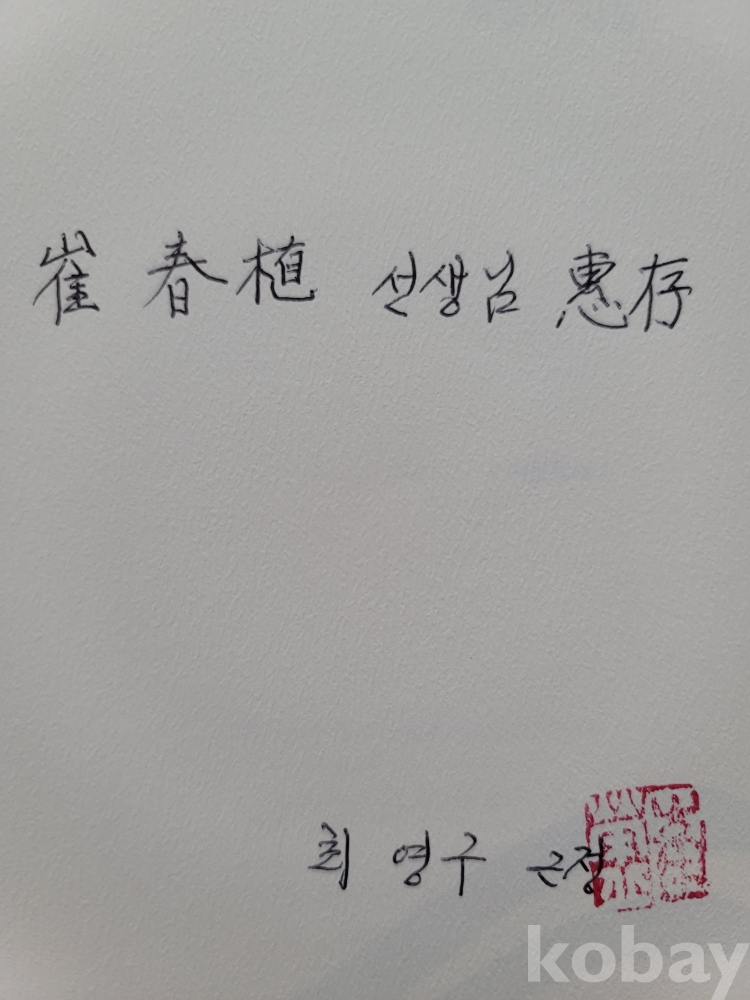 崔 春植 선생님 惠存
최 영구 근정
kobay